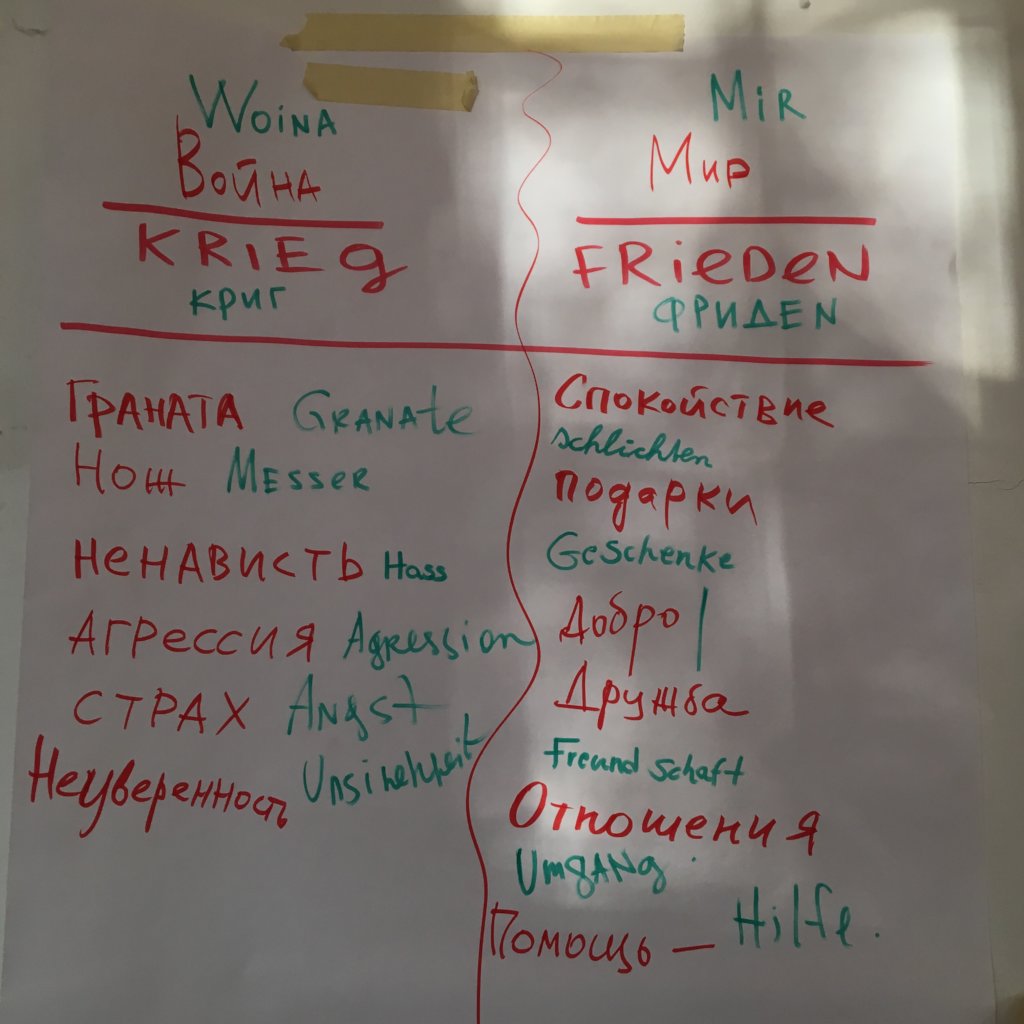 Woina
Война
KRIEg
КРИГ
Граната Granate
Нож Messer
Ненависть Hass
Агрессия Agression
Страх Angst
Неуверенность
Mir
Мир
FRieDeN
ФРИДЕН
Спокойствие
schlichten
подарки
Geschenke
Добро
Дружба
Freund schaft
Отношения
Umgang
Помощь — Hilfe.